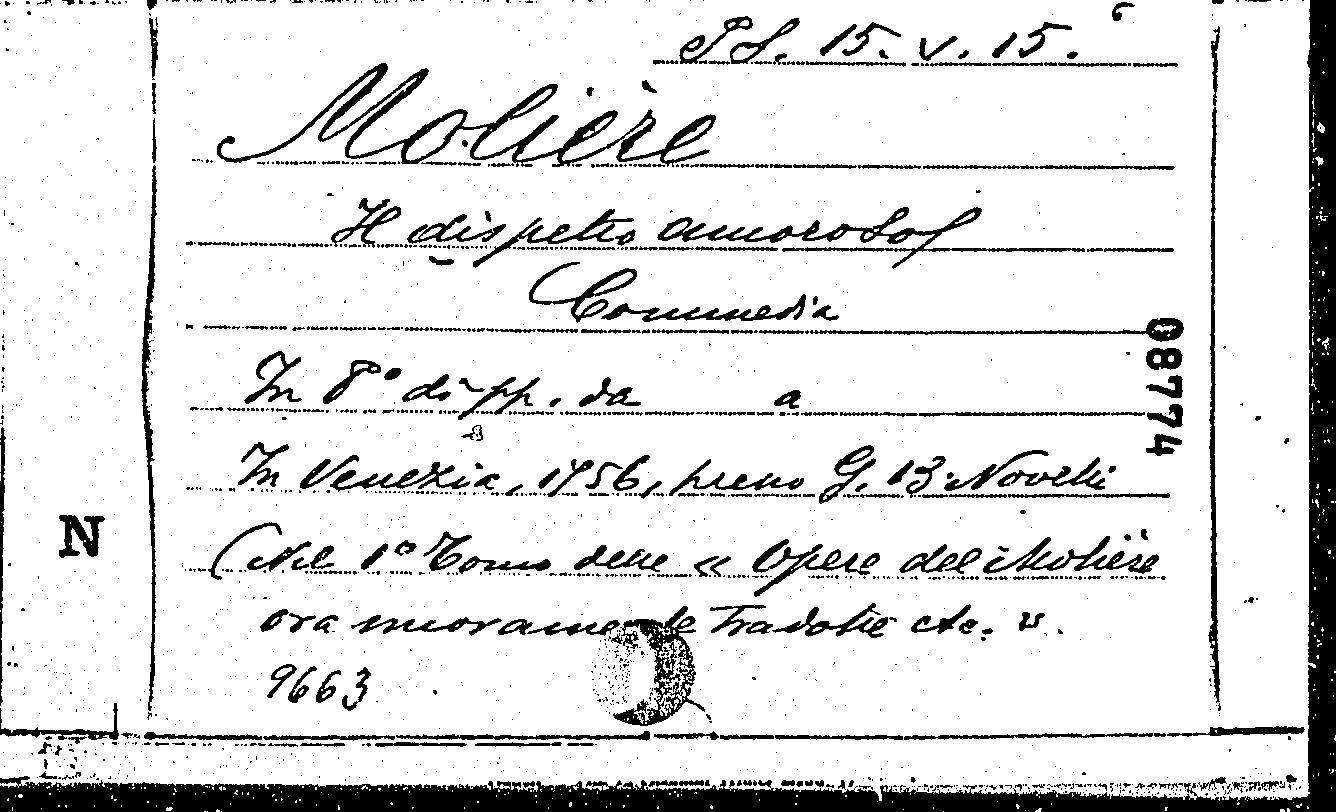 PS. 15. V. 15. 6
Molière
Il dispetto amoroso
Commedia
In 8° di pp. da a
In Venezia, 1756, presso G. B. Novelli
(Nel 1° Tomo delle « Opere del Molière
ora nuovamente Tradotte etc. ».
9663
N
08774